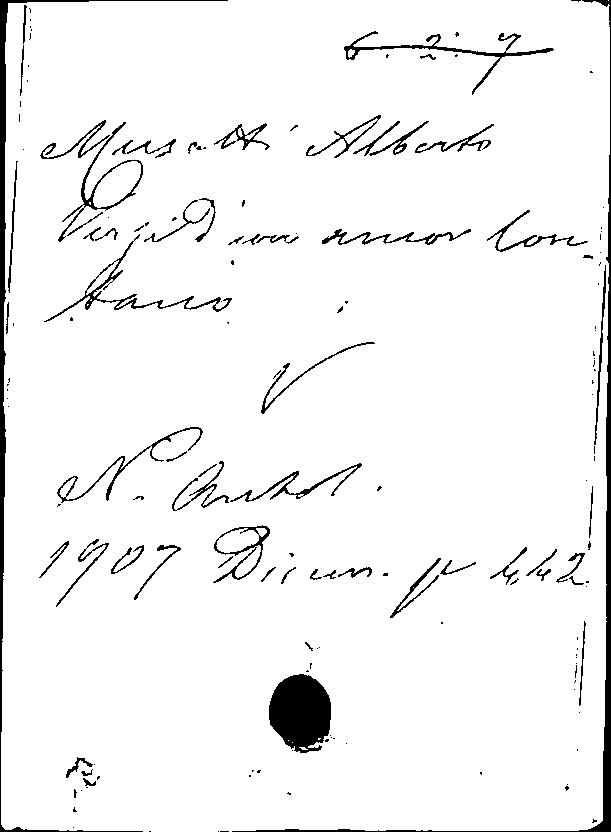 6. 2. 7
Musatti Alberto
Versi d'un amor lon-
tano
N. Antol.
1907 Dicem. p 442